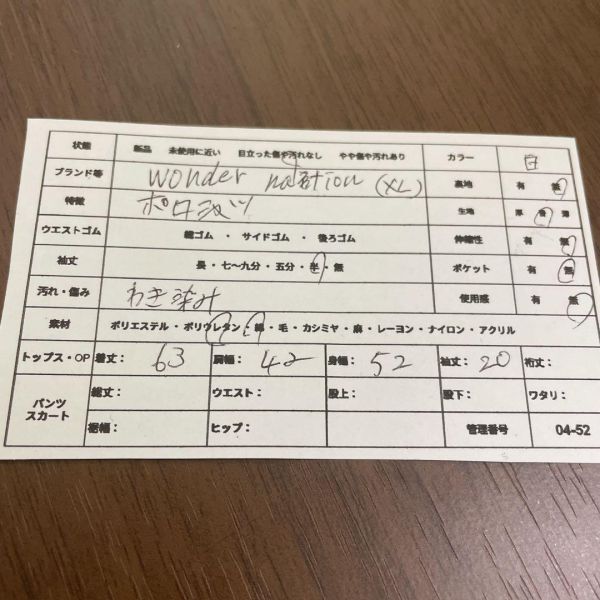 状態 新品 未使用に近い 目立った傷や汚れなし やや傷や汚れあり カラー 白
ブランド等 wonder nation (XL) 裏地 有 無
特徴 ポロシャツ 生地 厚 普 薄
ウエストゴム 総ゴム ・ サイドゴム ・ 後ろゴム 伸縮性 有 無
袖丈 長・七〜九分・五分・半・無 ポケット 有 無
汚れ・傷み わき染み 使用感 有 無
素材 ポリエステル・ポリウレタン・綿・毛・カシミヤ・麻・レーヨン・ナイロン・アクリル
トップス・OP 着丈: 63 肩幅: 42 身幅: 52 袖丈: 20 裄丈:
パンツ スカート 総丈: ウエスト: 股上: 股下: ワタリ:
裾幅: ヒップ: 管理番号 04-52